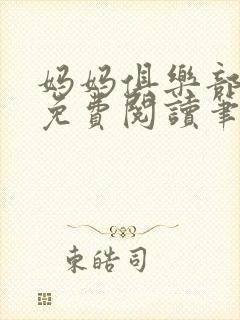 妈妈俱樂部
免費閱讀筆
東皓司